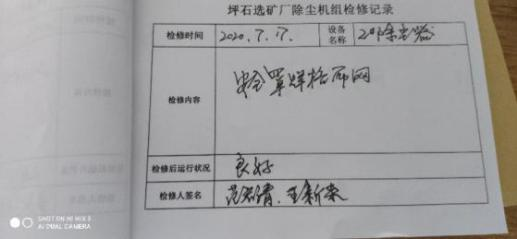 坪石选矿厂除尘机组检修记录
检修时间 2020.7.17. 设备名称 2#除尘器
检修内容 安全罩焊格筛网
检修后运行状况 良好
检修人签名 范君清、王新来
SHOT ON MI MIX 3
AI DUAL CAMERA